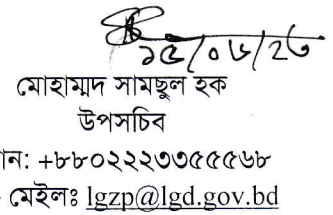 ১৫/০৬/২৩
মোহাম্মদ সামছুল হক
উপসচিব
ন: +৮৮০২২২৩৩৫৫৫৬৮
মেইলঃ lgzp@lgd.gov.bd